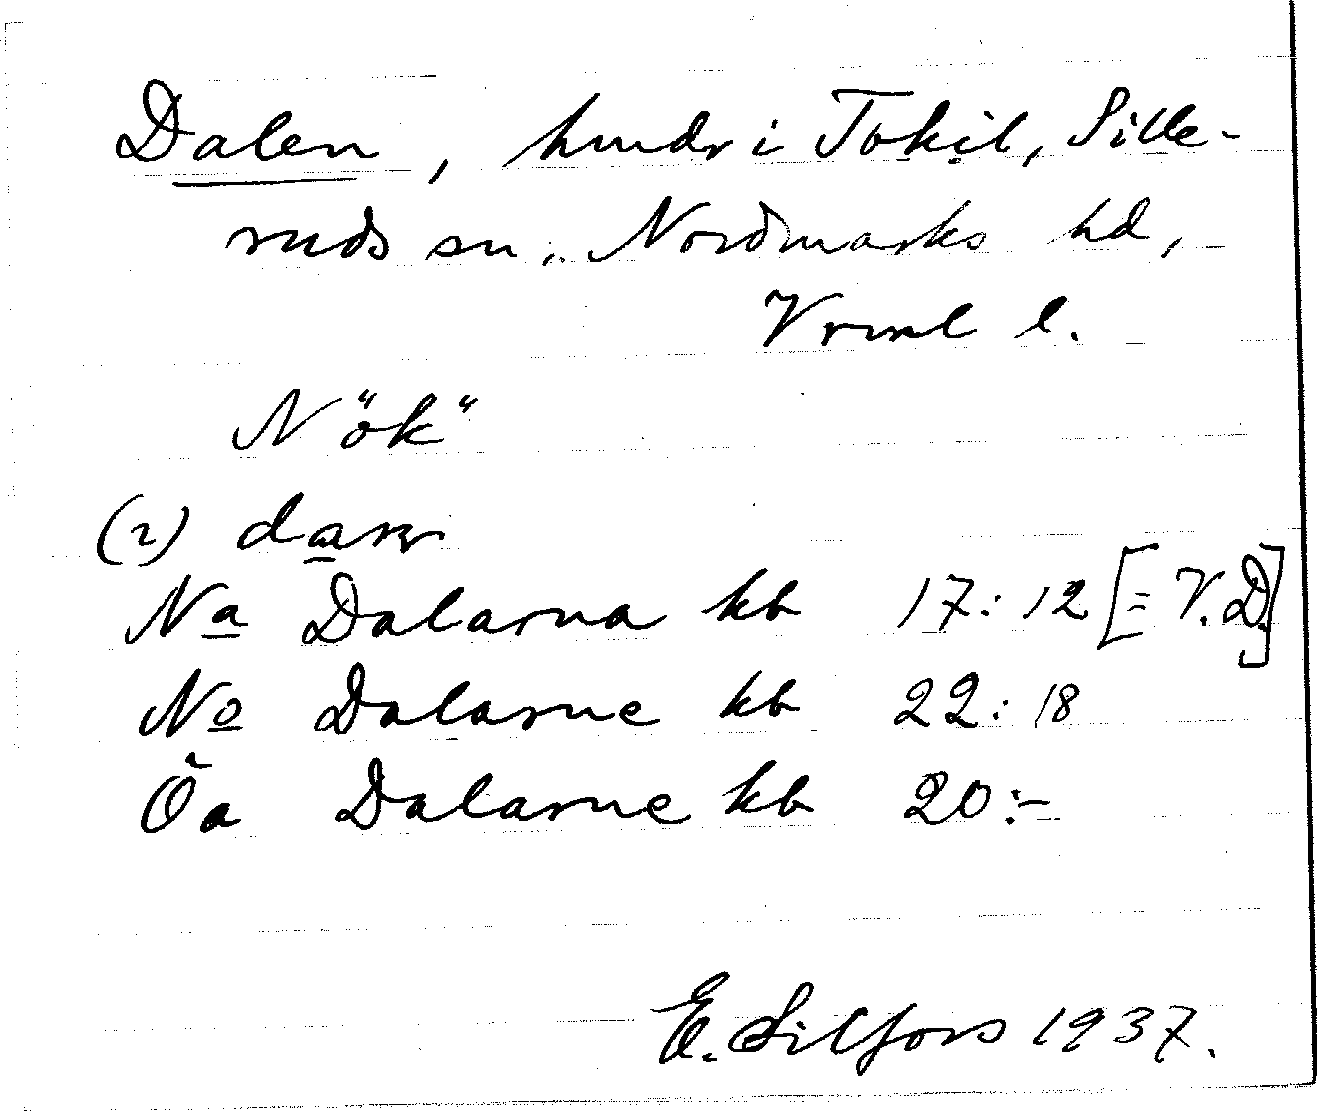 Dalen, hmdr i Tokil, Sille-
ruds sn, Nordmarks hd,
Vrml l.
N "ök"
(2)
Na Dalarna kb 17:12 [= V.D.]
No Dalarne kb 22:18
Öa Dalarne kb 20:-
E. Silfors 1937.